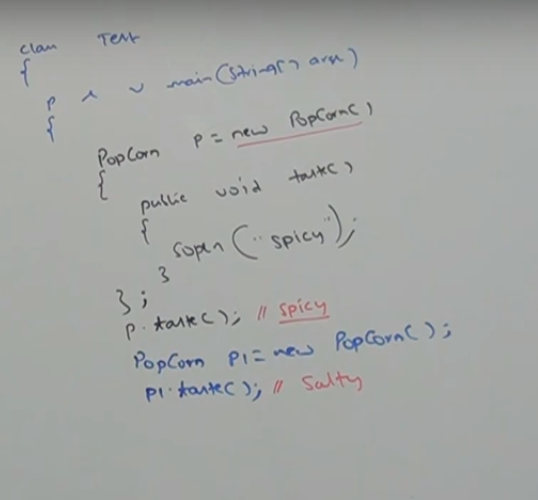 class Test
{
p s v main(String[] args)
{
PopCorn p = new PopCorn()
{
public void taste()
{
sopln("spicy");
}
};
p.taste(); // spicy
PopCorn p1 = new PopCorn();
p1.taste(); // Salty